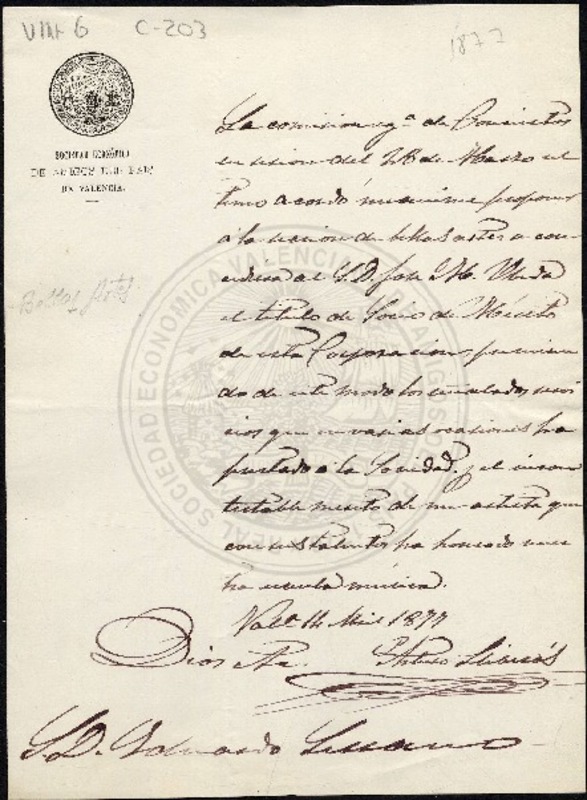 VIII-6 C-203
1877
SOCIEDAD ECONÓMICA
DE AMIGOS DEL PAIS
DE VALENCIA.
Bellas Artes
La comision eg.ª de Conciertos
en sesion del 28 de Marzo úl
timo acordó unanime proponer
á la seccion de bellas artes a con
ceda al S. D. José M. Úbeda
el título de Socio de Mérito
de esta Corporacion, premian
do de este modo los señalados servi
cios que en varias ocasiones ha
prestado á la Sociedad y el incon
testable merito de un artista que
con sus talentos ha honrado nues
tra escuela música.
Val.ª 14 Abril 1877
Dios &c.
S. D. Eduardo
REAL SOCIEDAD ECONOMICA VALENCIANA AMIGOS DEL PAIS